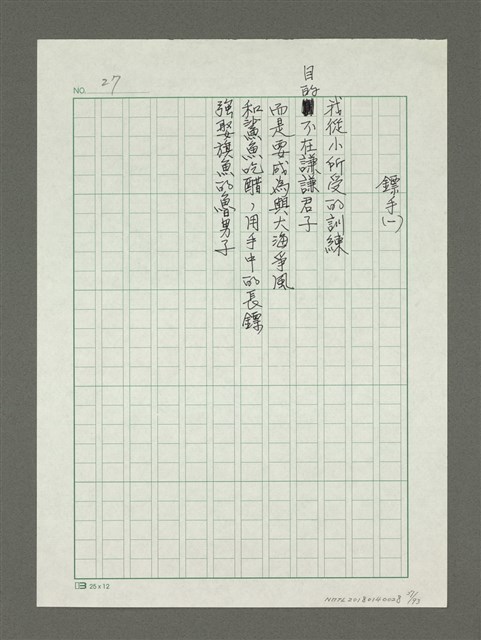 NO. 27
鏢手(一)
我從小所受的訓練
目的不在謙謙君子
而是要成為與大海爭風
和鯊魚吃醋，用手中的長鏢
強娶旗魚的魯男子
25 x 12
NMTL20180140028 7/93